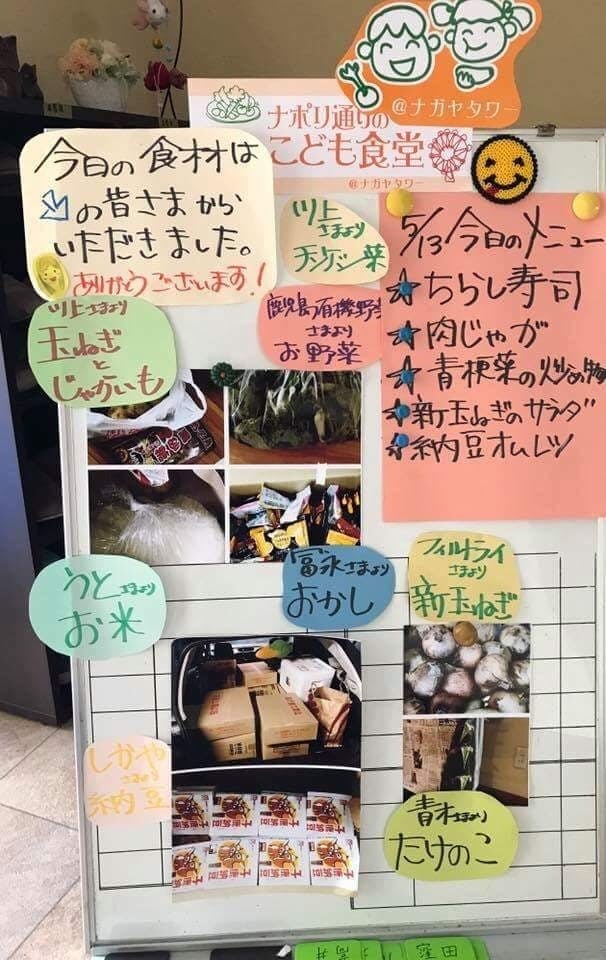 @ナガヤタワー
ナポリ通りの
こども食堂
@ナガヤタワー
今日の食材は
の皆さまから
いただきました。
ありがとうございます!
川上さまより
チンゲン菜
5/13 今日のメニュー
★ちらし寿司
★肉じゃが
★青梗菜の炒め物
★新玉ねぎのサラダ
★納豆オムレツ
川上さまより
玉ねぎ
と
じゃがいも
鹿児島有機野
さまより
お野菜
うとさまより
お米
冨永さまより
おかし
フィルトライ
さまより
新玉ねぎ
しかや
さまより
納豆
青木さまより
たけのこ
窪田